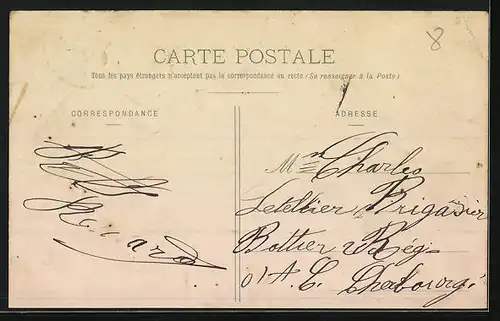 8
CARTE POSTALE
Tous les pays étrangers n'acceptent pas la correspondance au recto (Se renseigner à la Poste)
CORRESPONDANCE
ADRESSE
Mr Charles
Letellier Brigadier
Bottier 2 Rég
d'A. C. Cherbourg